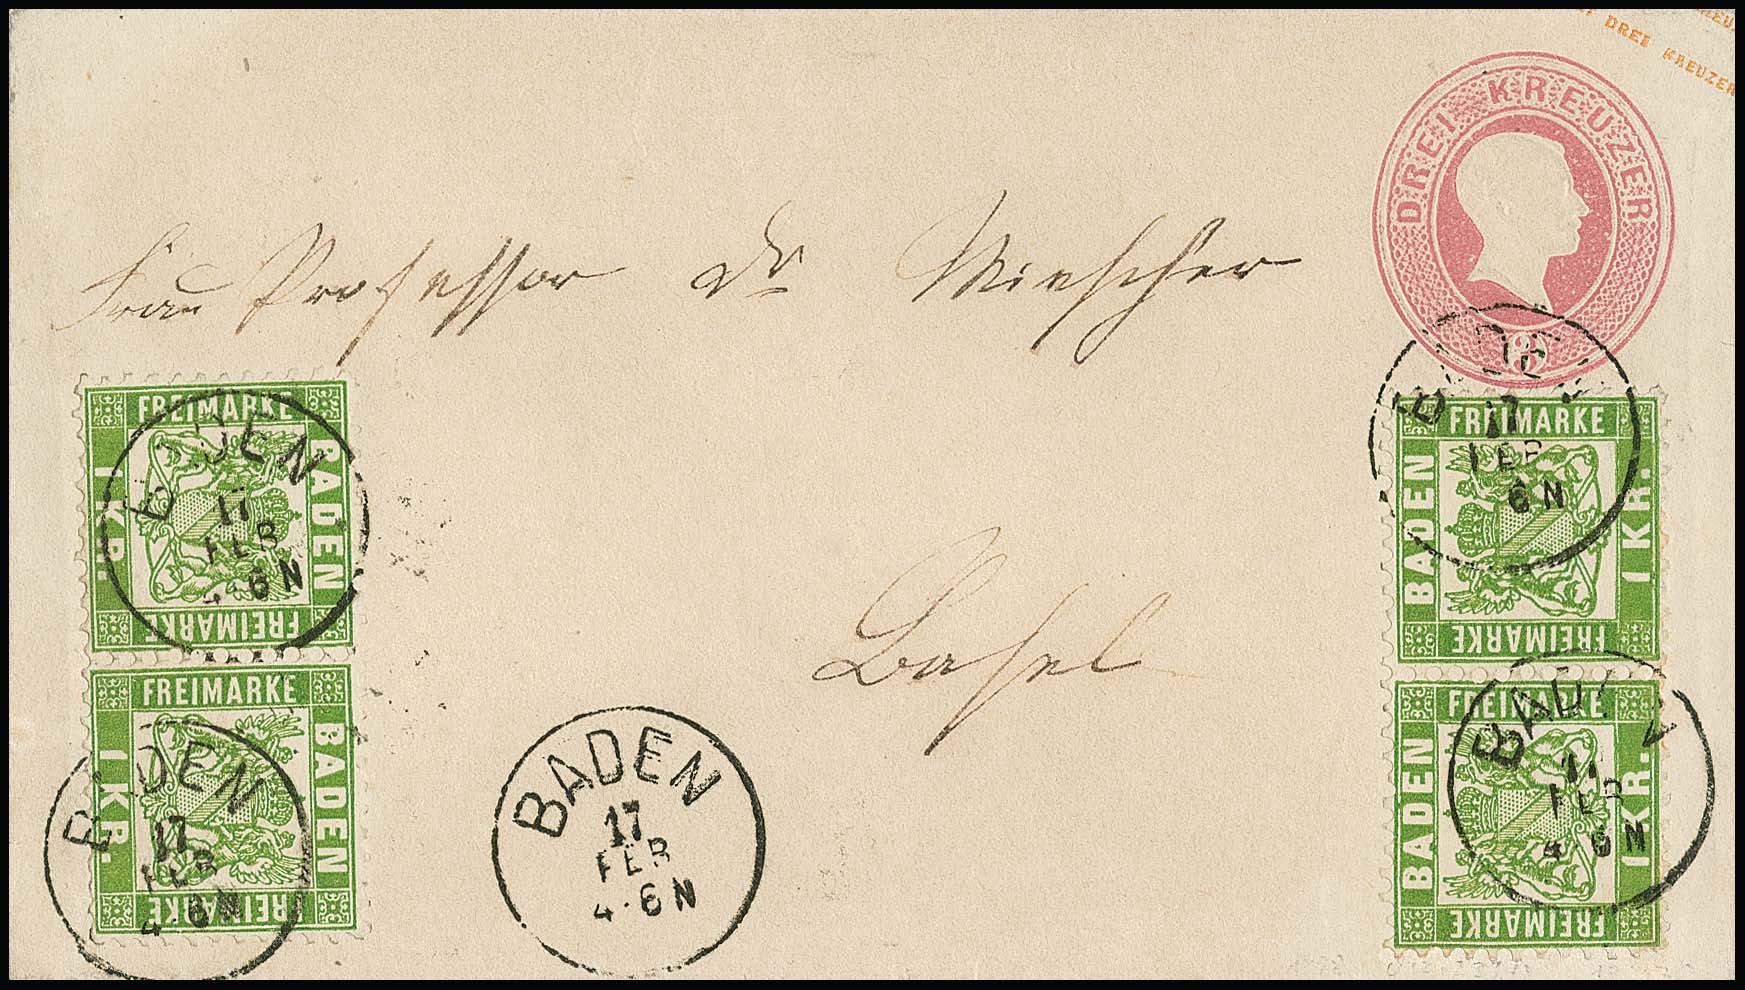 DREI KREUZER
DREI KREUZER
3
Frau Professor Dr Miescher
Basel
FREIMARKE
BADEN
1 KR.
FREIMARKE
FREIMARKE
BADEN
1 KR.
FREIMARKE
FREIMARKE
BADEN
1 KR.
FREIMARKE
FREIMARKE
BADEN
1 KR.
FREIMARKE
BADEN
17
FEB
4·6N
BADEN
17
FEB
4·6N
BADEN
17
FEB
4·6N
BADEN
17
FEB
6N
BADEN
17
FEB
4·6N